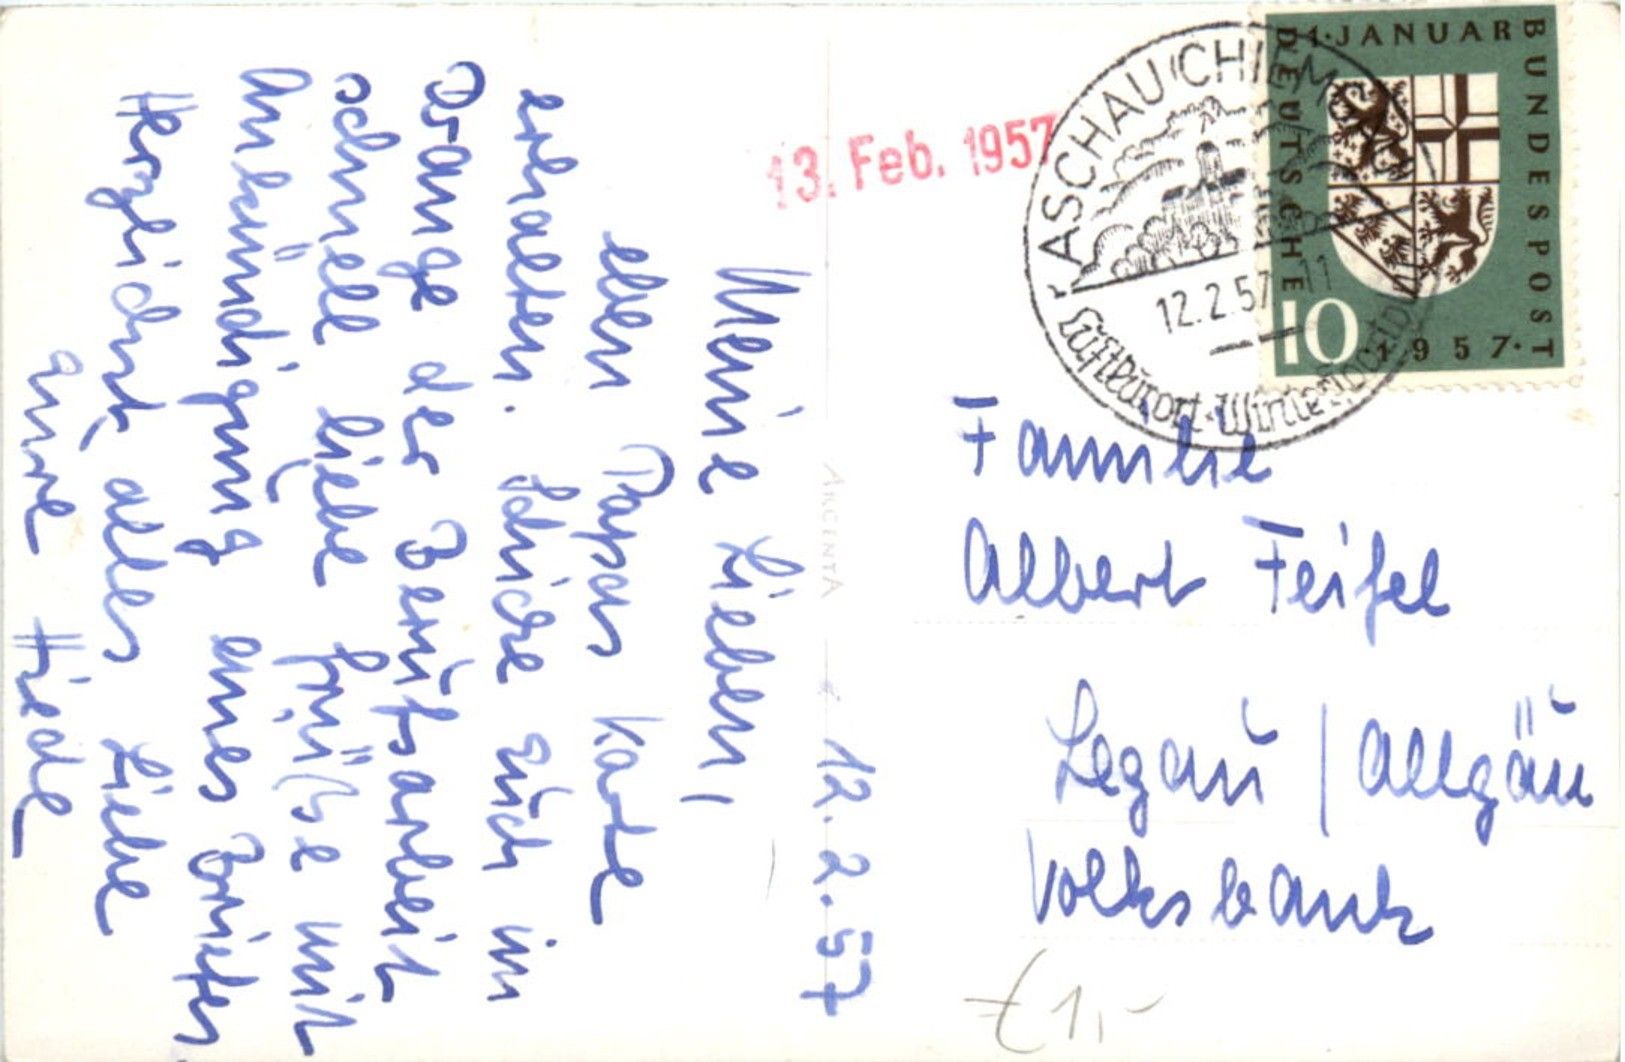 12.2.57
Meine Lieben,
eben Papas Karte
erhalten. Schicke Euch im
Drange der Berufsarbeit
schnell liebe Grüße mit
Ankündigung eines Briefes
Herzlichst alles Liebe
Eure Hiede
ARGENTA
13. Feb. 1957
ASCHAU (CHIEMGAU)
12.2.57-11
Luftkurort · Wintersportplatz
1. JANUAR
DEUTSCHE
BUNDESPOST
10
1957
Familie
Albert Feifel
Legau / Allgäu
Volksbank
€ 1,-